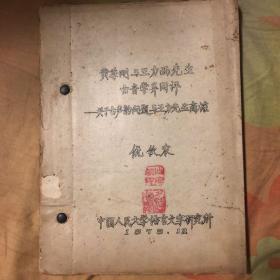 黄季刚与王力两先生
古音学异同评
——关于古声韵问题与王力先生商榷
中国人民大学语言文字研究所
1979.12